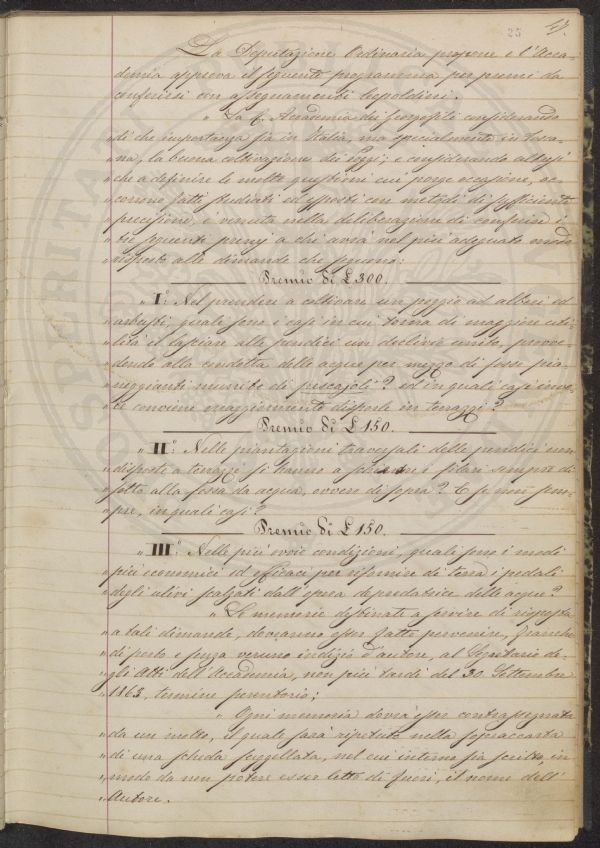 25
43.
La Deputazione Ordinaria propone e l'Acca-
demia approva il seguente programma per premi da
conferirsi con assegnamenti Cupoldini.
" La R. Accademia dei Georgofili considerando
" di che importanza sia in Italia, ma specialmente in Tosca-
" na, la buona coltivazione dei poggi; e considerando altresì
" che a definire le molte questioni cui porge occasione, oc-
" corrono fatti studiati ed esposti con metodi di sufficiente
" precisione, è venuta nella deliberazione di conferire i
" tre seguenti premj a chi avrà nel più adeguato modo
" risposto alle dimande che seguono:
Premio di £ 300.
" I.° Nel prendere a coltivare un poggio ad alberi ed
" arbusti, quali sono i casi in cui torna di maggiore uti-
" lità il lasciare alle pendici un declivio unito, provve-
" dendo alla condotta delle acque per mezzo di fosse pia-
" neggianti munite di pescajoli? ed in quali casi inve-
" ce conviene maggiormente disporle in terrazzi?
Premio di £ 150.
" II.° Nelle piantagioni traversali delle pendici non
" disposte a terrazzi si hanno a i filari sempre di
" sotto alla fossa da acqua, ovvero di sopra? E se non sem-
" pre, in quali casi?
Premio di £ 150.
" III.° Nelle più ovvie condizioni, quali sono i modi
" più economici ed efficaci per rifornire di terra i pedali
" degli ulivi scalzati dall'opera depredatrice delle acque?
" Le memorie destinate a servire di risposta
" a tali dimande, dovranno esser fatte pervenire, franche
" di porto e senza veruno indizio d'autore, al Segretario de-
" gli Atti dell'Accademia, non più tardi del 30. Settembre
" 1863, termine perentorio;
" Ogni memoria dovrà esser contrassegnata
" da un motto, il quale sarà ripetuto nella sopraccarta
" di una scheda sigillata, nel cui interno sia scritto, in
" modo da non potere esser letto di fuori, il nome dell'
" Autore.